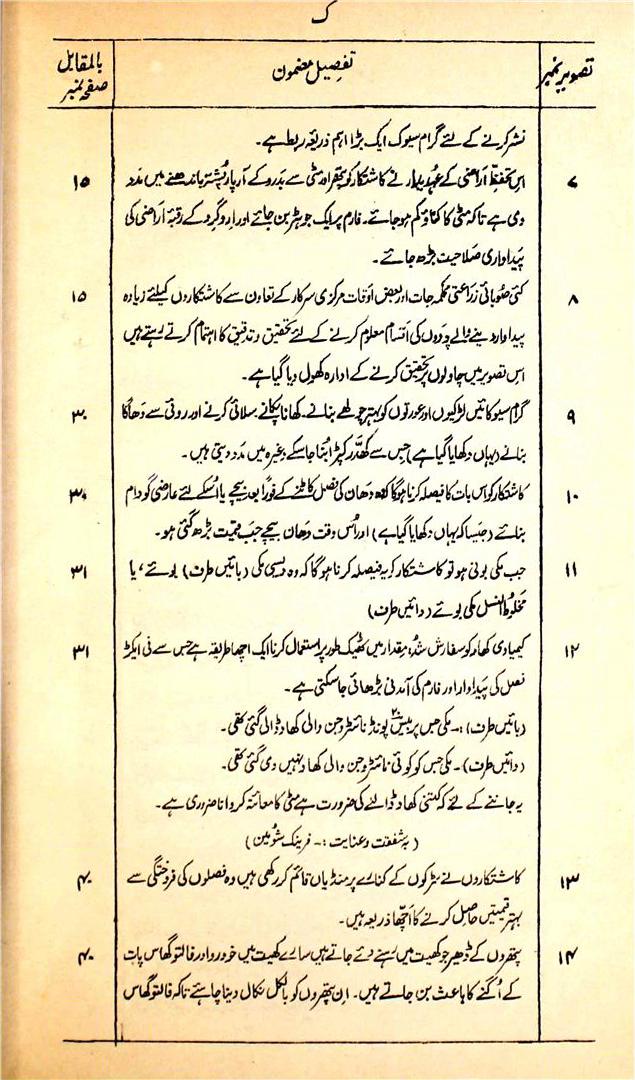 ک
تصویر نمبر تفصیل مضمون بالمقابل صفحہ نمبر
نشر کرنے کے لئے گرام سیوک ایک بڑا اہم ذریعۂ ربط ہے۔
۷ اس تحفظِ آراضی کے عہدیدار نے کاشتکار کو پتھر اور مٹی سے بدرو کے آر پار پُشتہ باندھنے میں مَدد ۱۵
دی ہے تاکہ مٹی کا کٹاؤ کم ہو جائے۔ فارم پر ایک جوہڑ بن جائے اور اِردگِرد کے رقبۂ آراضی کی
پَیداواری صَلاحیت بڑھ جائے۔
۸ کئی صُوبائی زراعتی محکمہ جات اور بعض اوقات مرکزی سرکار کے تعاون سے کاشتکاروں کیلئے زیادہ ۱۵
پیداوار دینے والے پودوں کی اقسام معلوم کرنے کے لئے تحقیق و تدقیق کا اہتمام کرتے رہتے ہیں
اس تصویر میں چاولوں پر تحقیق کرنے کے ادارہ کھول دیا گیا ہے۔
۹ گرام سیوکائیں لڑکیوں اور عورتوں کو بہتر چولھے بنانے۔ کھانا پکانے سلائی کرنے اور روئی سے دھاگا ۳۰
بنانے (یہاں دکھایا گیا ہے) جس سے کھدّر کپڑا بُنا جا سکے وغیرہ میں مدد دیتی ہیں۔
۱۰ کاشتکار کو اس بات کا فیصلہ کرنا ہوگا کہ وہ دھان کی فصل کاٹنے کے فوراً بعد بیچے یا اُسکے لئے عارضی گودام ۳۰
بنائے (جَیسا کہ یہاں دکھایا گیا ہے) اور اُس وقت دھان بیچے جب قیمت بڑھ گئی ہو۔
۱۱ جب مکی بونی ہو تو کاشتکار کو یہ فیصلہ کرنا ہوگا کہ وہ دیسی مکی (بائیں طرف) بوئے، یا ۳۱
مخلوط النسل مکی بوئے (دائیں طرف)
۱۲ کیمیاوی کھاد کو سفارش شُدہ مِقدار میں ٹھیک طور پر استعمال کرنا ایک اچھا طریقہ ہے جس سے فی ایکڑ ۳۱
فصل کی پَیداوار اور فارم کی آمدنی بڑھائی جا سکتی ہے۔
(بائیں طرف):۔ مکی جس پر بیس ۲۰ پونڈ نائٹروجن والی کھاد ڈالی گئی تھی۔
(دائیں طرف)۔ مکی جس کو کوئی نائٹروجن والی کھاد نہیں دی گئی تھی۔
یہ جاننے کے لئے کہ کتنی کھاد ڈالنے کی ضرورت ہے مٹی کا معائنہ کروانا ضروری ہے۔
(بہ شفقت و عنایت:۔ فرینک شومین)
۱۳ کاشتکاروں نے سڑکوں کے کنارے پر منڈیاں قائم کر رکھی ہیں وہ فصلوں کی فروختگی سے ۴۰
بہتر قیمتیں حاصِل کرنے کا اَچھّا ذریعہ ہیں۔
۱۴ پتھروں کے ڈھیر جو کھیت میں رہنے دئے جاتے ہیں سارے کھیت میں خودرو اور فالتو گھاس پات ۴۰
کے اُگنے کا باعث بن جاتے ہیں۔ اِن پتھروں کو بالکل نکال دینا چاہئے تاکہ فالتو گھاس